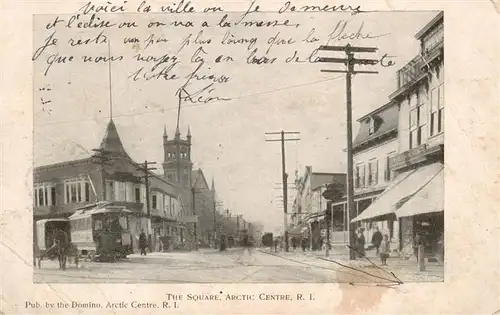 Voici la ville ou je demeure
et l'église ou on va a la messe.
Je reste un peu plus long que la flèche
que vous voyez en bas de la carte
Votre frère
THE SQUARE, ARCTIC CENTRE, R. I.
Pub. by the Domino, Arctic Centre, R. I.